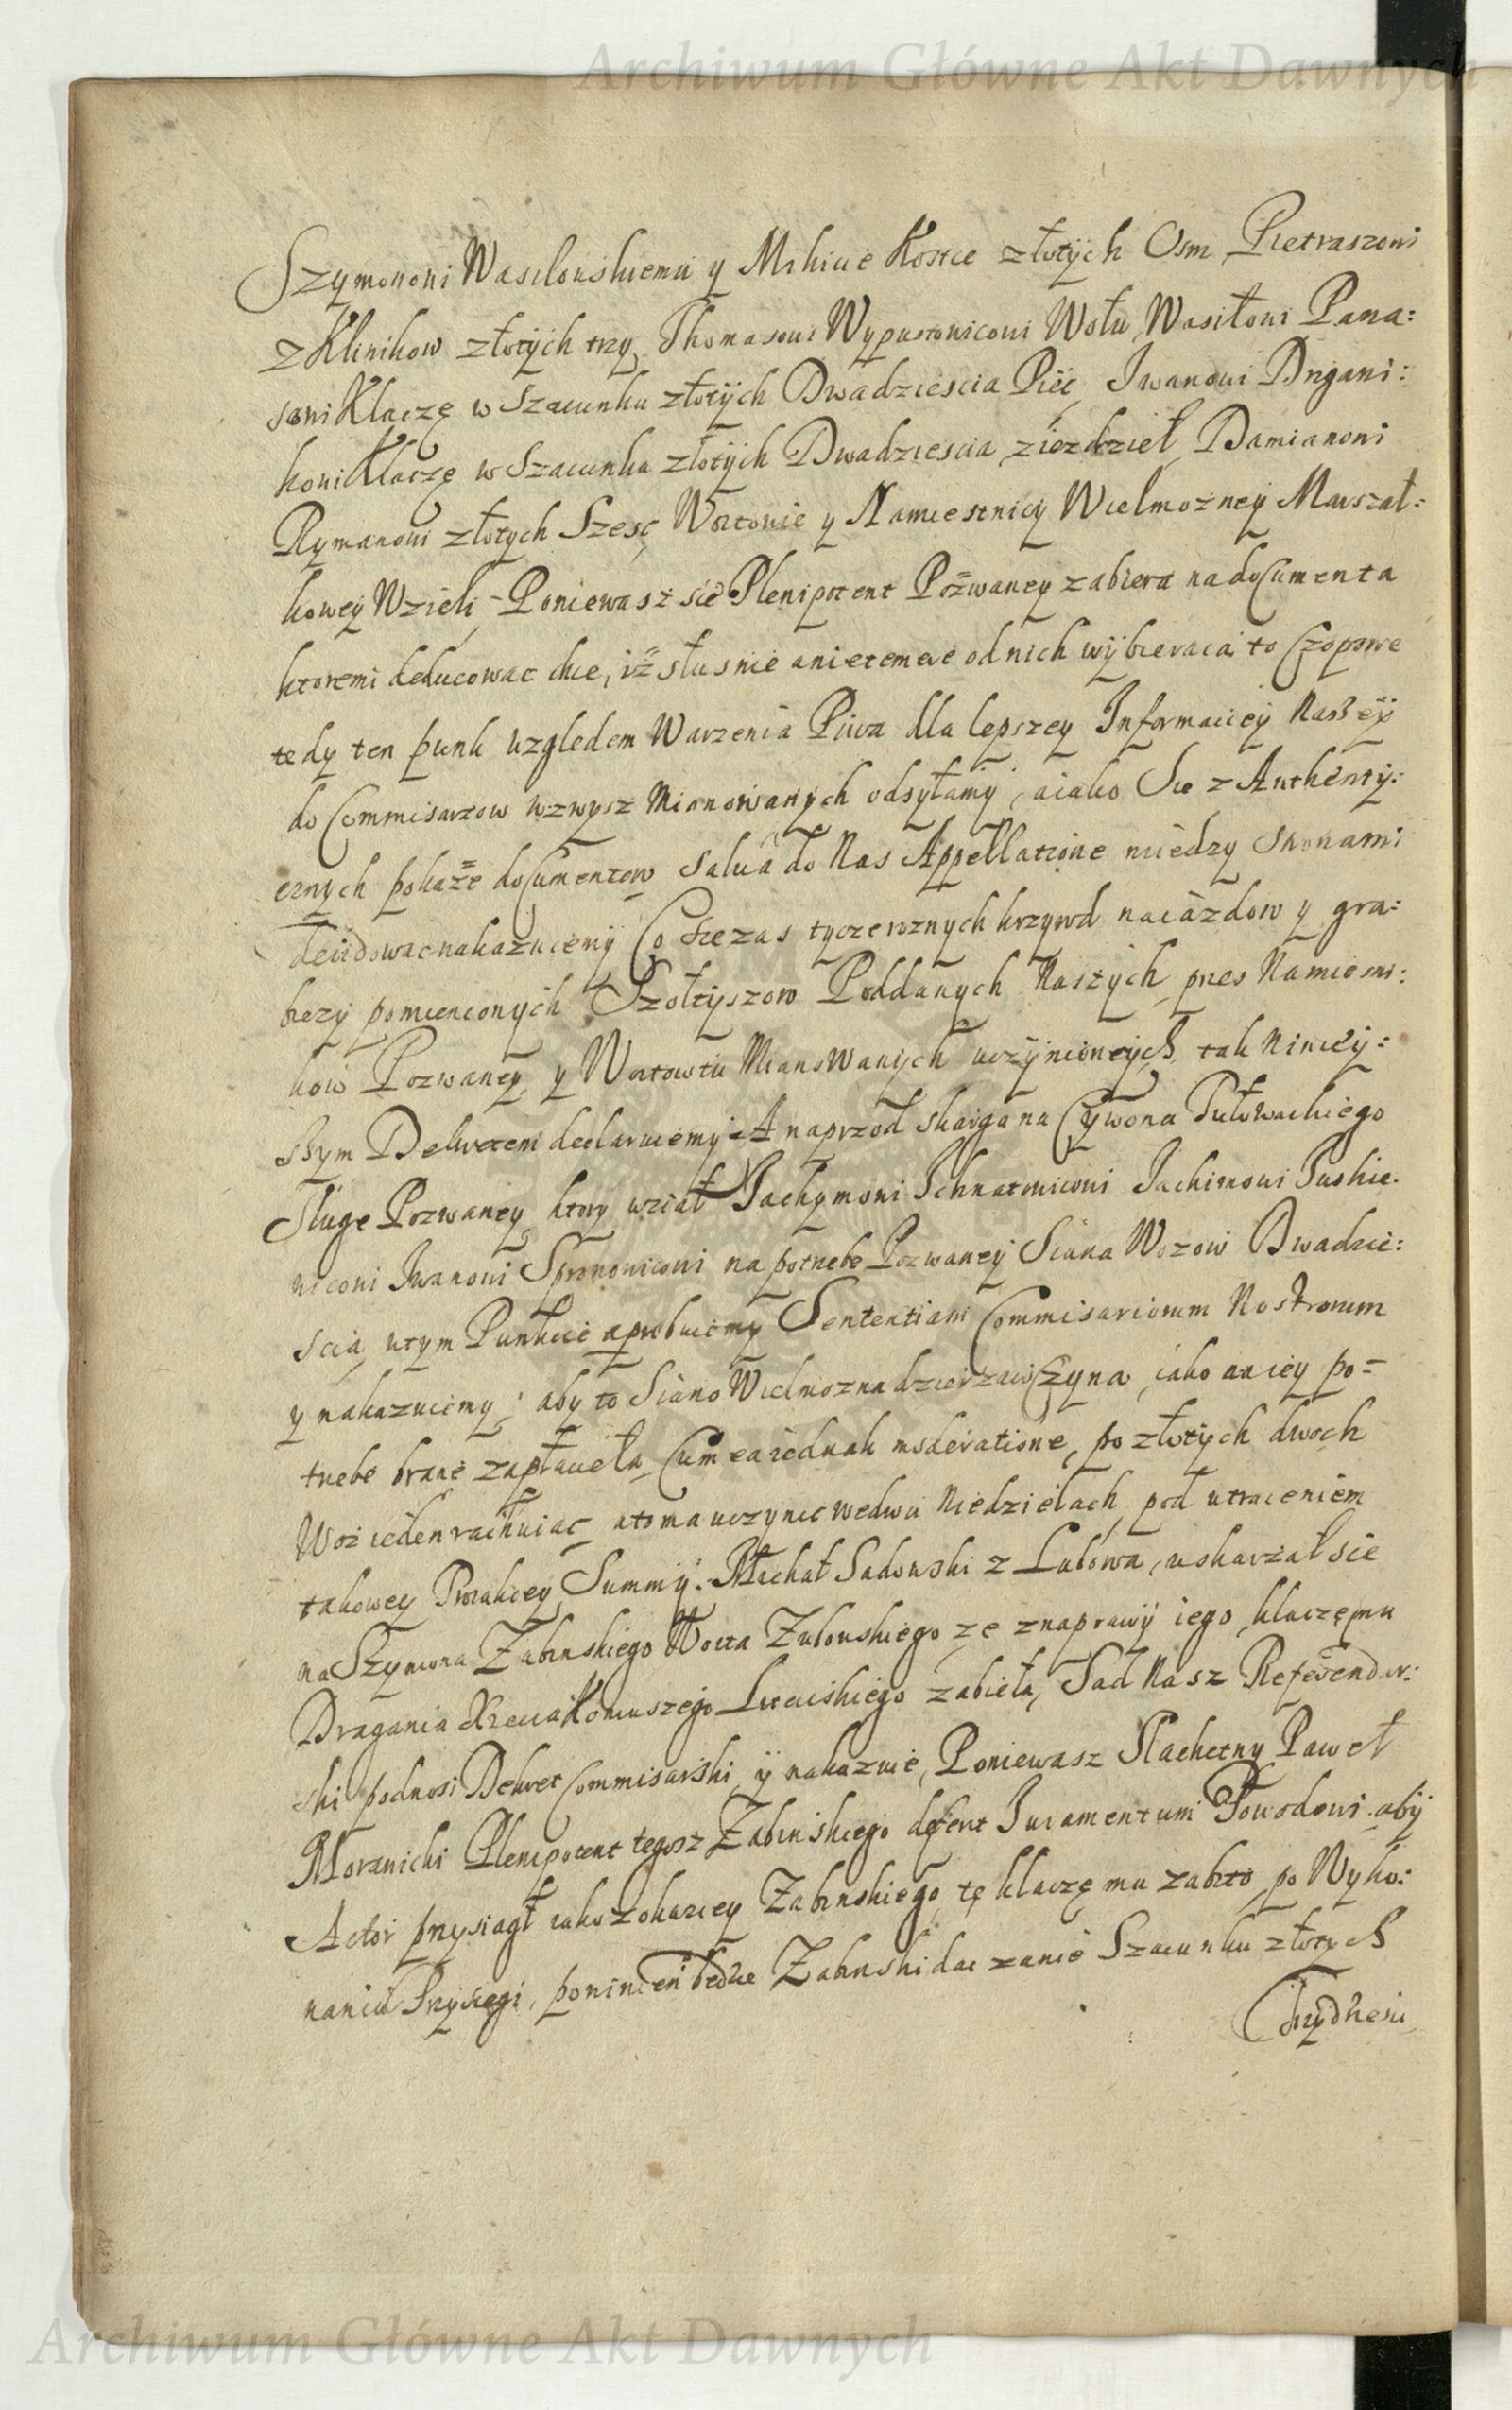 Archiwum Główne Akt Dawnych
Szymonowi Wasilowskiemu y Mihicie Kostce złotÿch Osm Pietraszowi
z Klinikow złotÿch trzy, Thomasowi Wypustowicowi Wołu, Wasiłowi Pana:
sowi Klaczę w Szacunku złotÿch Dwadziescia Pięc, Iwanowi Drgani:
kowi Klaczę w Szacunku złotÿch Dwadziescia, Damianowi
Rymanowi złotych Szesc, Woitowie y Namiestnicÿ Wielmozneÿ Marszał:
koweÿ Wzieli, Poniewasz sie Plenipotent Pozwaney zabiera na documenta
ktoremi deducowac chce, iz słusnie a nie temere od nich wÿbieraia to Czopowe
tedy ten punkt wzgledem Warzenia Piwa dla lepszey Informacieÿ Naszeÿ
do Commisarzow wzwysz Mianowanÿch odsyłamÿ, a iako Sie z Authenty:
cznych pokaze documentow salua do Nas Appellatione między Stronami
decidowac nakazuiemÿ Co sie zas tycze roznych krzywd naiazdow y gra:
biezÿ pomienionÿch Szołtÿszow Poddanych Naszÿch, przes Namiesni:
kow Pozwaney, y Woitowtu Mianowanÿch uczÿnionÿch, tak Ninieÿ:
szym Dekretem declaruiemÿ A naprzod skarga na Cywona Tułowackiego
Sługe Pozwaney, ktory wział Jachymowi Jachimowi
Iwanowi na potrzebe Pozwaneÿ Siana Wozow Dwadzie:
scia, w tym Punkcie aprobuiemÿ Sententiam Commisariorum Nostrorum
y nakazuiemy, aby to Siano Wielmozna dzierzawczyna, iako na iey po=
trzebe brane zapłaciła, Cum ea iednak moderatione, po złotÿch dwoch
Woz ieden rachuiac, a to ma uczynic we dwu Niedzielach, pod utraceniem
takowey Summÿ. Michał Sadowski z Lubowa, uskarzał sie
na Szymona Zabinskiego Woita Zulowskiego ze z naprawÿ iego, klaczę mu
Dragania Koniuszego zabieła, Sad Nasz Referendar:
ski podnosi Dekret Commisarski, ÿ nakazuie, Poniewasz Slachetny Paweł
Moranicki Plenipotent tegosz Zabinskiego defert Iuramentum Powodowi abÿ
Actor przysiągł iako z okaziey Zabinskiego, tę klaczę mu zabito, po Wyko:
naniu Przysięgi, powinien będzie Zabinski dac zanie Szacunku złotych
Trzydziesci
Archiwum Główne Akt Dawnych